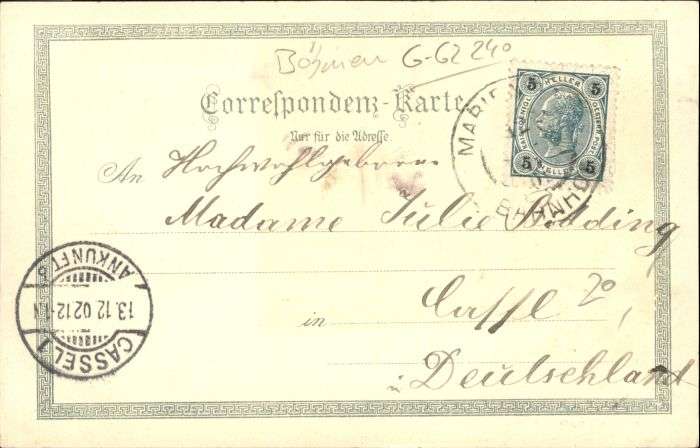 Böhmen G-62 240
Correspondenz-Karte
Nur für die Adresse.
An Hochwohlgeboren
Madame Julie
in Cassel
Deutschland
5 HELLER 5
5 HELLER 5
MARIE
BAHNHO
CASSEL 1
13.12 02 12-1N
ANKUNFT